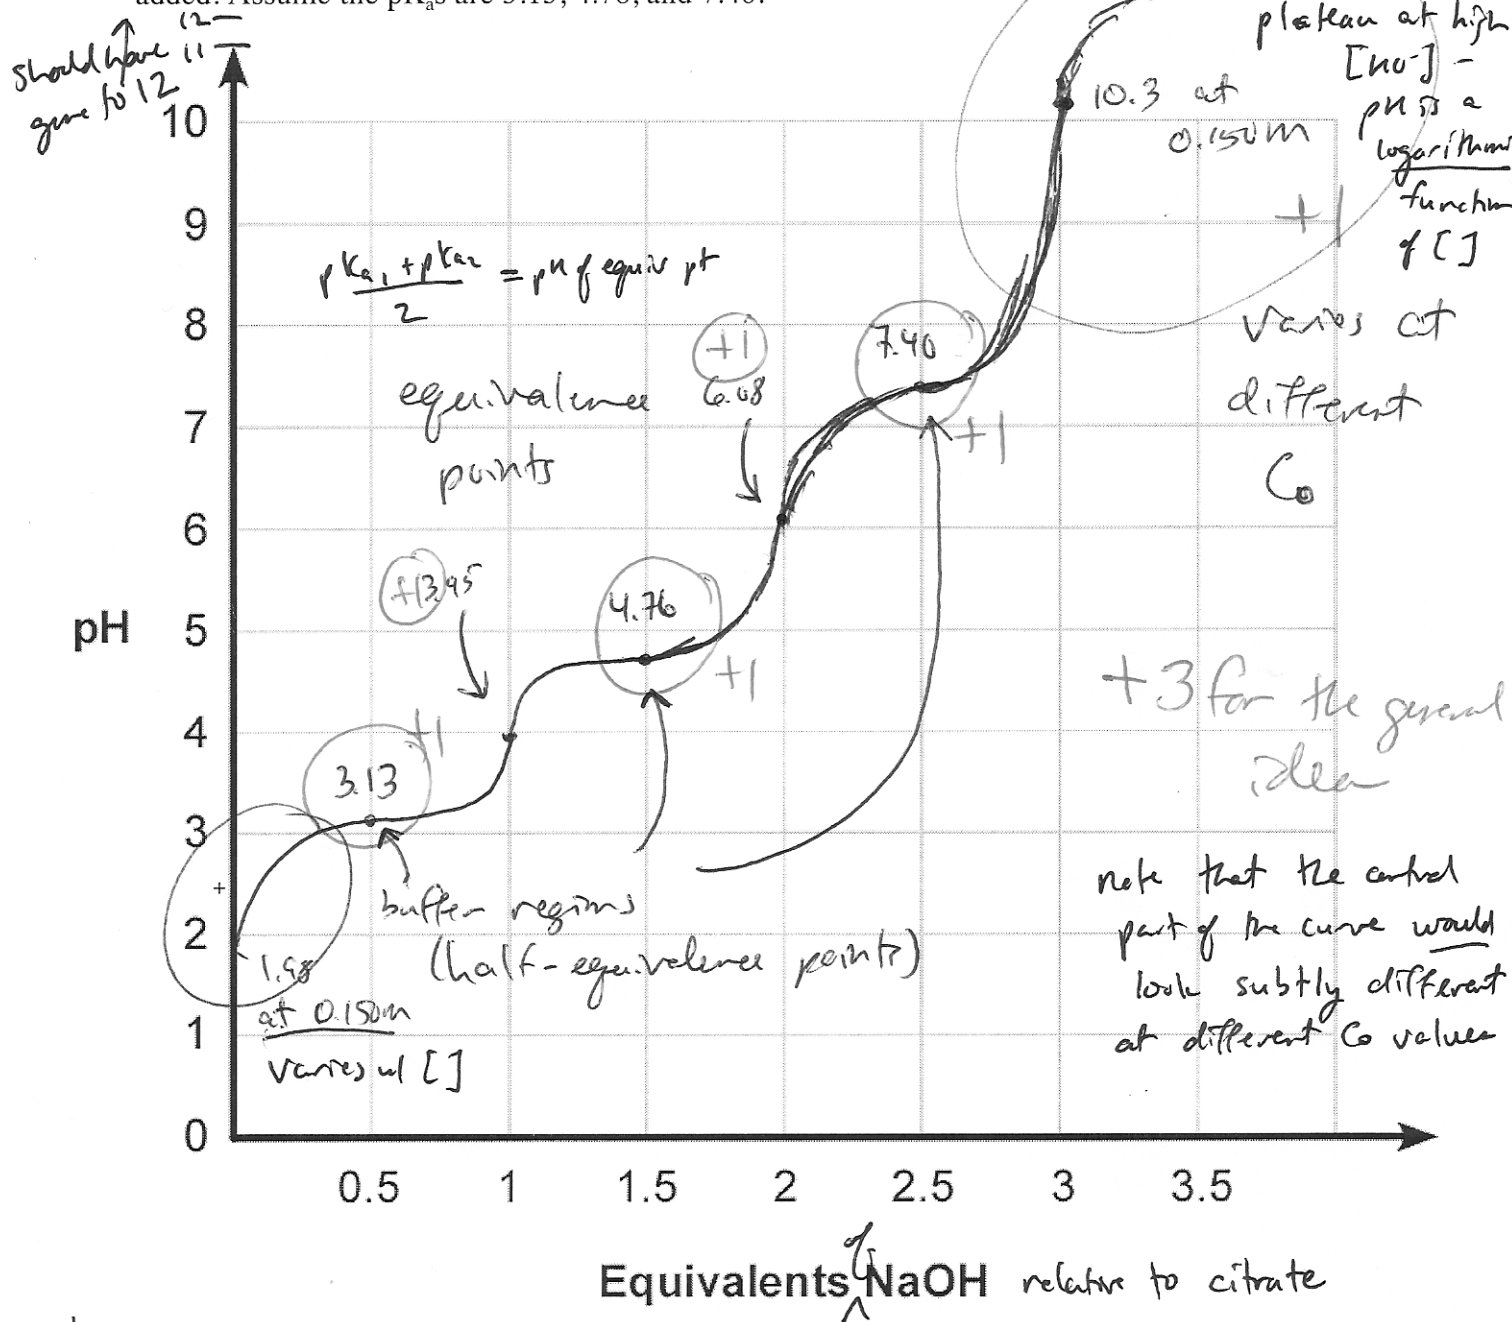 added. Assume the pKₐs are 3.13, 4.76, and 7.40.
should have
gone to 12
12
11
10
9
8
7
6
5
4
3
2
1
0
pH
plateau at high
[HO⁻] -
pH is a
logarithmic
function
of [ ]
10.3 at
0.150M
+1
varies at
different
C₀
pKa₁ + pKa₂
2
= pH of equiv pt
equivalence
points
+1
6.08
7.40
+1
+1
3.95
4.76
+1
+1
3.13
+3 for the general
idea
buffer regions
(half-equivalence points)
+
1.98
at 0.150M
varies w/ [ ]
note that the central
part of the curve would
look subtly different
at different C₀ values
0.5 1 1.5 2 2.5 3 3.5
of
Equivalents NaOH relative to citrate